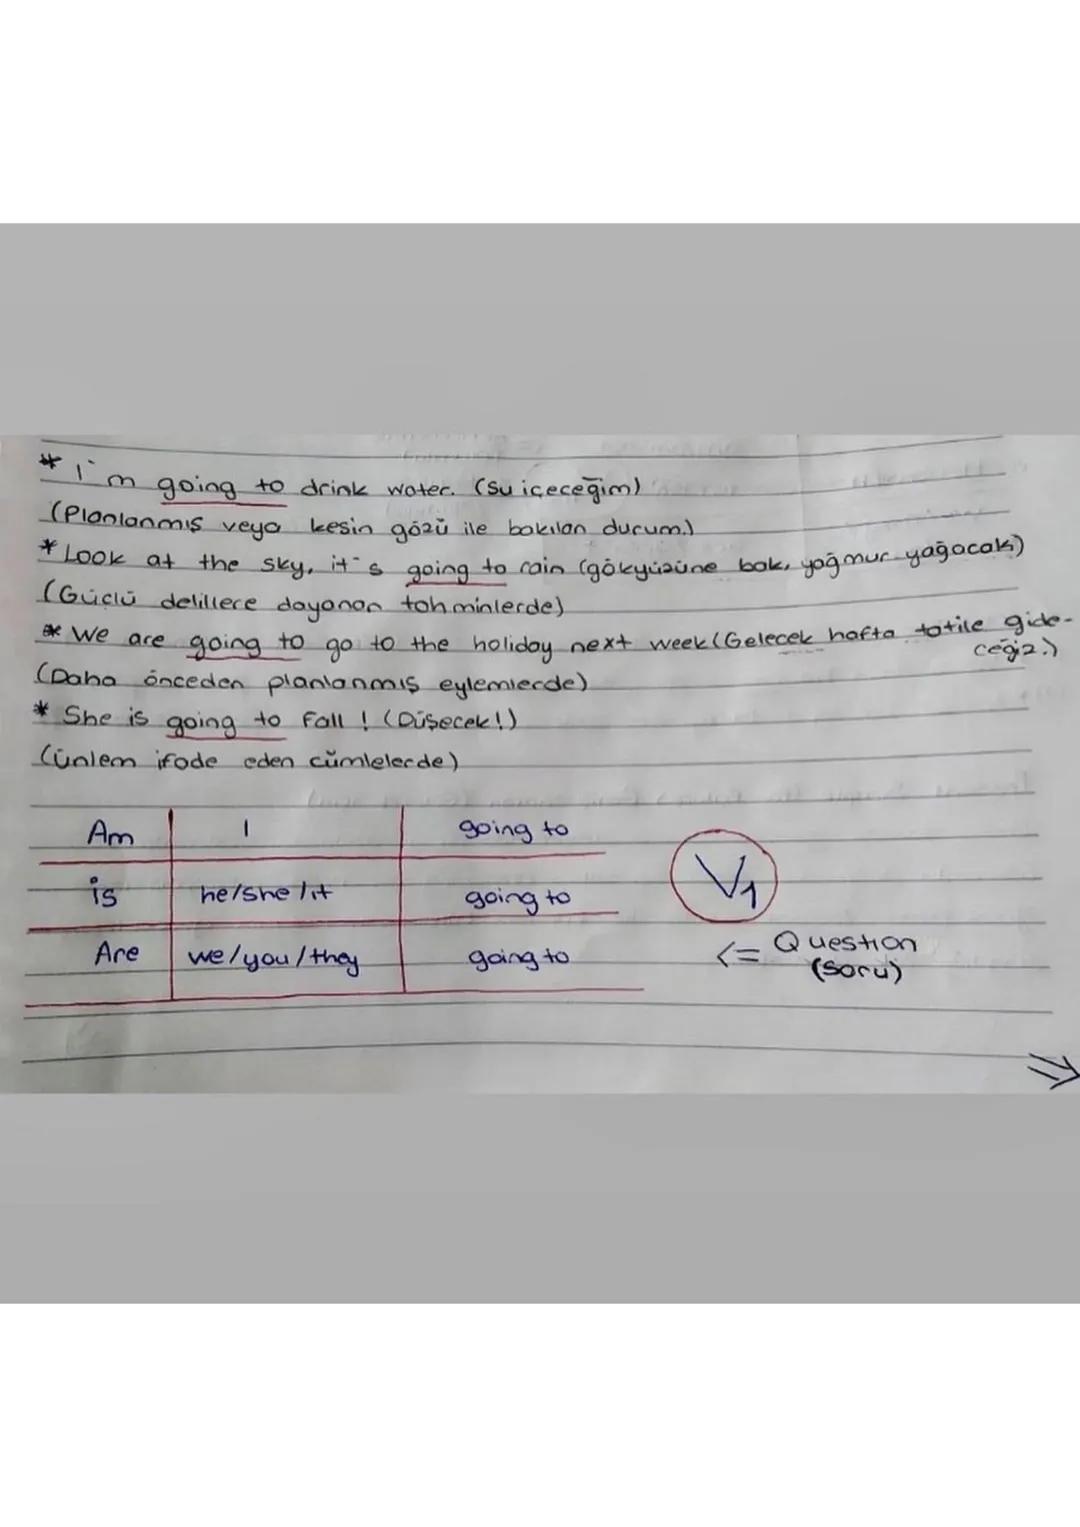 * I'm going to drink water. (Su içeceğim)
(Planlanmış veya kesin gözü ile bakılan durum.)
* Look at the sky, it's going to rain (gökyüzüne bak, yağmur yağacak)
(Güçlü delillere dayanan tahminlerde)
* We are going to go to the holiday next week (Gelecek hafta tatile gide-
ceğiz.)
(Daha önceden planlanmış eylemlerde)
* She is going to Fall! (Düşecek!)
(ünlem ifade eden cümlelerde)
Am I going to
is he/she/it going to
V1
Are we/you/they going to
<= Question
(Soru)
=>